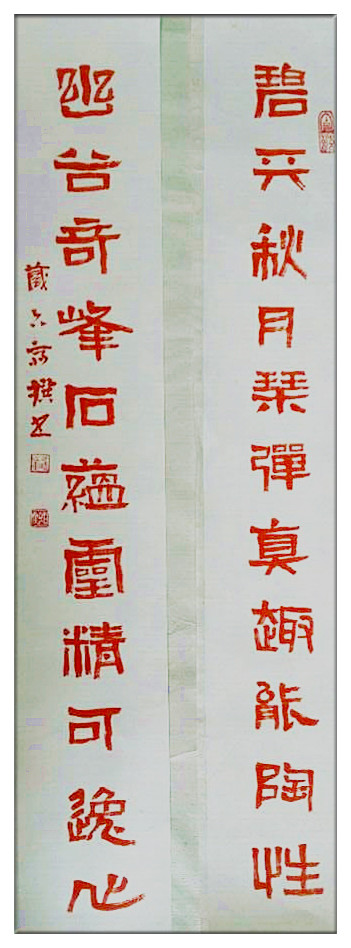 碧天秋月琹彈真趣能陶性
幽谷奇峰石蘊靈精可逸心
撰書